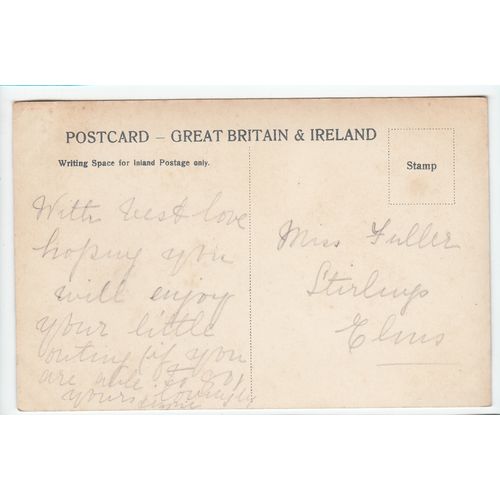 POSTCARD – GREAT BRITAIN & IRELAND
Writing Space for Inland Postage only.
Stamp
With best love
hoping you
will enjoy
your little
outing if you
are able to go
yours lovingly
Miss Fuller
Stirlings
Elms